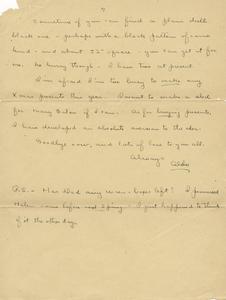 7
Sometime if you can find a plain dull
black one - perhaps with a black pattern of some
kind - and about 52" square - you can get it for
me. No hurry though - I have two at present.
I'm afraid I'm too busy to make any
X-mas presents this year. I want to make a sled
for Mary Helen if I can. As for buying presents,
I have developed an absolute aversion to the idea.
Goodbye now, and lots of love to you all.
Always -
P.S. - Has Dad any wren-boxes left? I promised
Helen some before next Spring - I just happened to think
of it the other day.